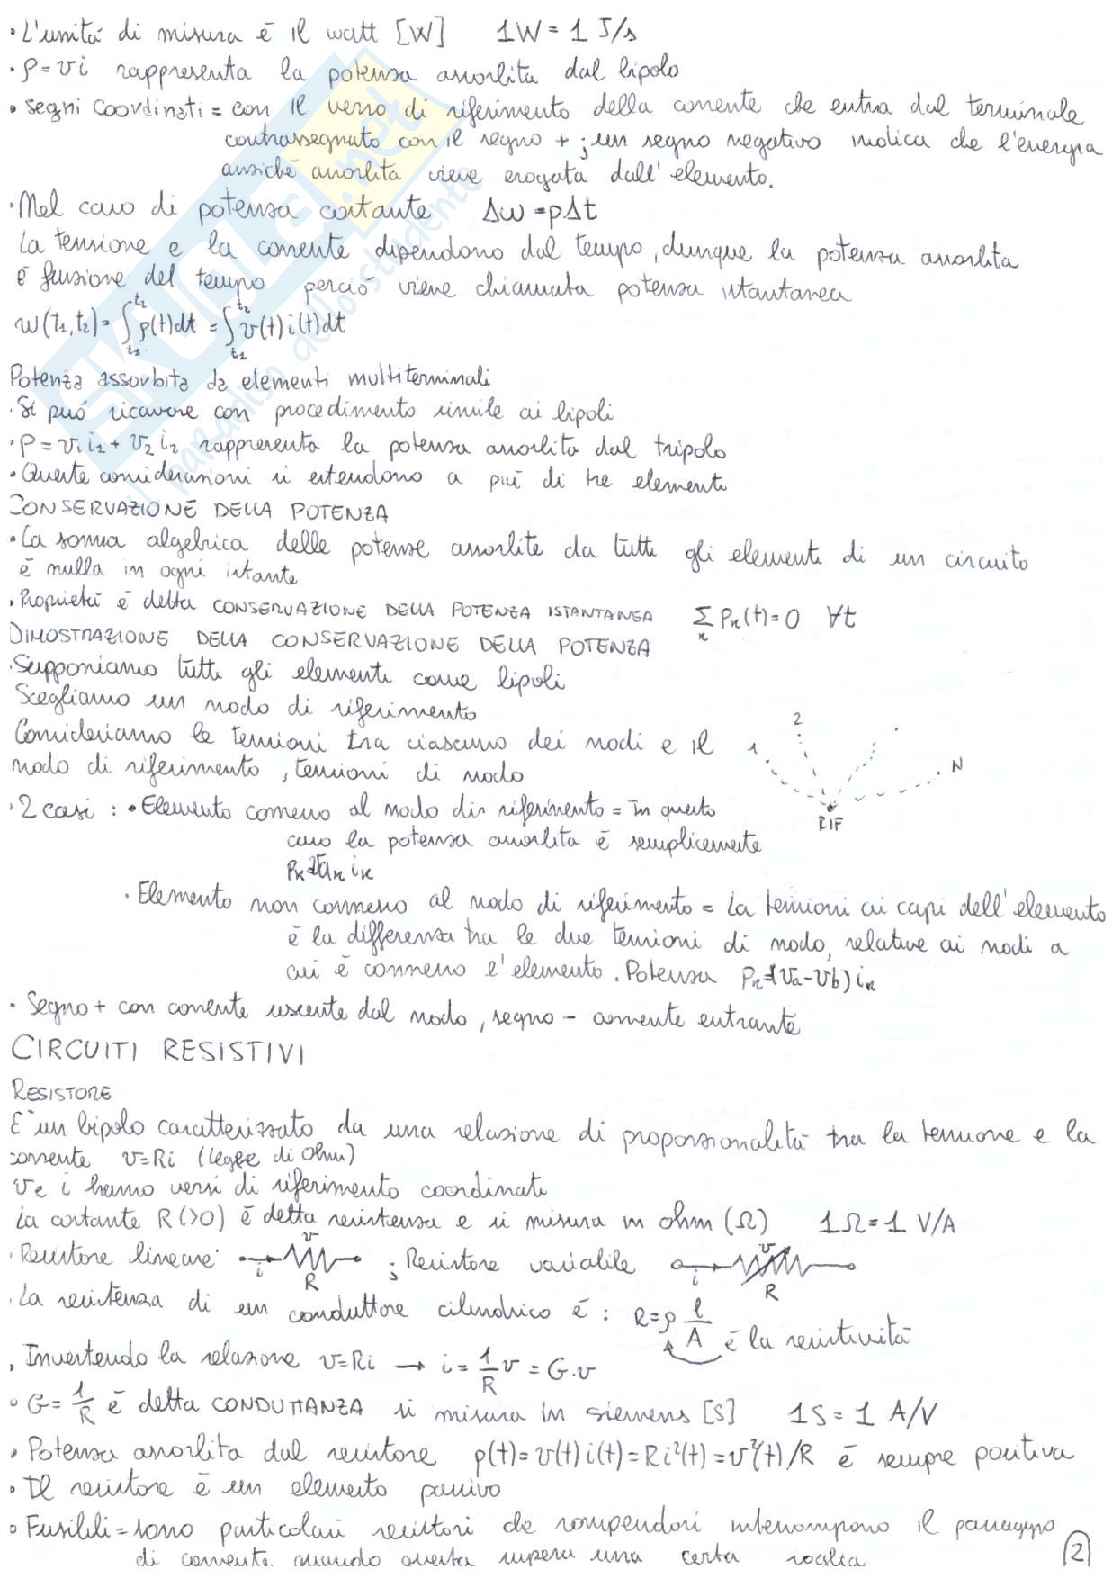 • L'unità di misura è il watt [W] 1W = 1 J/s
• p=vi rappresenta la potenza assorbita dal bipolo
• Segni Coordinati = con il verso di riferimento della corrente che entra dal terminale
contrassegnato con il segno + ; un segno negativo indica che l'energia
anziché assorbita viene erogata dall'elemento.
• Nel caso di potenza costante Δw = pΔt
La tensione e la corrente dipendono dal tempo, dunque la potenza assorbita
è funzione del tempo perciò viene chiamata potenza istantanea
w(t₁,t₂) = ∫t₁t₂ p(t)dt = ∫t₁t₂ v(t)i(t)dt
Potenza assorbita da elementi multiterminali
• Si può ricavare con procedimento simile ai bipoli
• P = v₁i₁ + v₂i₂ rappresenta la potenza assorbita dal tripolo
• Queste considerazioni si estendono a più di tre elementi
CONSERVAZIONE DELLA POTENZA
• La somma algebrica delle potenze assorbite da tutti gli elementi di un circuito
è nulla in ogni istante
• Proprietà è detta CONSERVAZIONE DELLA POTENZA ISTANTANEA Σκ Pκ(t)=0 ∀t
DIMOSTRAZIONE DELLA CONSERVAZIONE DELLA POTENZA
• Supponiamo tutti gli elementi come bipoli
Scegliamo un nodo di riferimento
Consideriamo le tensioni tra ciascuno dei nodi e il
nodo di riferimento, tensioni di nodo
1 2 N RIF
• 2 casi : • Elemento connesso al nodo di riferimento = In questo
caso la potenza assorbita è semplicemente
Pκ=±vaκ iκ
• Elemento non connesso al nodo di riferimento = La tensioni ai capi dell'elemento
è la differenza tra le due tensioni di nodo, relative ai nodi a
cui è connesso l'elemento. Potenza Pκ=±(va-vb)iκ
• Segno + con corrente uscente dal nodo, segno - corrente entrante
CIRCUITI RESISTIVI
RESISTORE
E' un bipolo caratterizzato da una relazione di proporzionalità tra la tensione e la
corrente v=Ri (legge di Ohm)
v e i hanno versi di riferimento coordinati
La costante R(>0) è detta resistenza e si misura in ohm (Ω) 1Ω=1 V/A
• Resistore lineare: v i R ; Resistore variabile v i R
• La resistenza di un conduttore cilindrico è : R=ρ l/A è la resistività
• Invertendo la relazione v=Ri → i = 1/R v = G·v
• G= 1/R è detta CONDUTTANZA si misura in siemens [S] 1S = 1 A/V
• Potenza assorbita dal resistore p(t)=v(t)i(t)=Ri²(t)=v²(t)/R è sempre positiva
• Il resistore è un elemento passivo
• Fusibili = sono particolari resistori che rompendosi interrompono il passaggio
di corrente quando questa supera una certa soglia
2
SKUOLA.net
il paradiso dello studente